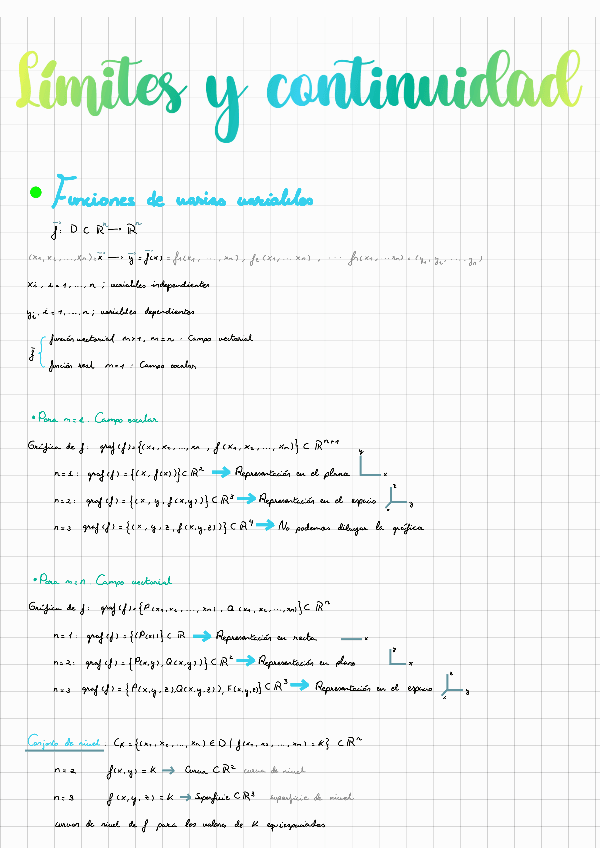 Límites y continuidad
Funciones de varias variables
f⃗: D ⊂ ℝⁿ ⟶ ℝᵐ
(x₁, x₂, ..., xₙ) = x⃗ ⟶ y⃗ = f⃗(x) = f₁(x₁, ..., xₙ), f₂(x₁, ... xₙ), ... fₙ(x₁, ..., xₙ) = (y₁, y₂, ..., yₙ)
xᵢ, i = 1, ..., n ; variables independientes
yⱼ, i = 1, ..., n ; variables dependientes
f⃗ { función vectorial m>1, m=n : Campo vectorial
función real m=1 : Campo escalar
• Para m=1. Campo escalar
Gráfica de f: graf(f)={(x₁, x₂, ..., xₙ, f(x₁, x₂, ..., xₙ)} ⊂ ℝⁿ⁺¹
n=1: graf(f)={(x, f(x))} ⊂ ℝ² → Representación en el plano y x
n=2: graf(f)={(x, y, f(x,y))} ⊂ ℝ³ → Representación en el espacio z y x
n=3 graf(f)={(x, y, z, f(x,y,z))} ⊂ ℝ⁴ → No podemos dibujar la gráfica
• Para m=n Campo vectorial
Gráfica de f: graf(f)={P(x₁, x₂, ..., xₙ), Q(x₁, x₂, ..., xₙ)} ⊂ ℝⁿ
n=1: graf(f)={(P(x)} ⊂ ℝ → Representación en recta x
n=2: graf(f)={P(x,y), Q(x,y))} ⊂ ℝ² → Representación en plano z x
n=3 graf(f)={P(x,y,z), Q(x,y,z), F(x,y,z)} ⊂ ℝ³ → Representación en el espacio z y x
Conjunto de nivel. Cₖ={(x₁, x₂, ..., xₙ) ∈ D / f(x₁, x₂, ..., xₙ) = K} ⊂ ℝⁿ
n=2 f(x,y) = K → Curva ⊂ ℝ² curva de nivel
n=3 f(x,y,z) = K → Superficie ⊂ ℝ³ superficie de nivel
curvas de nivel de f para los valores de K equiespaciados